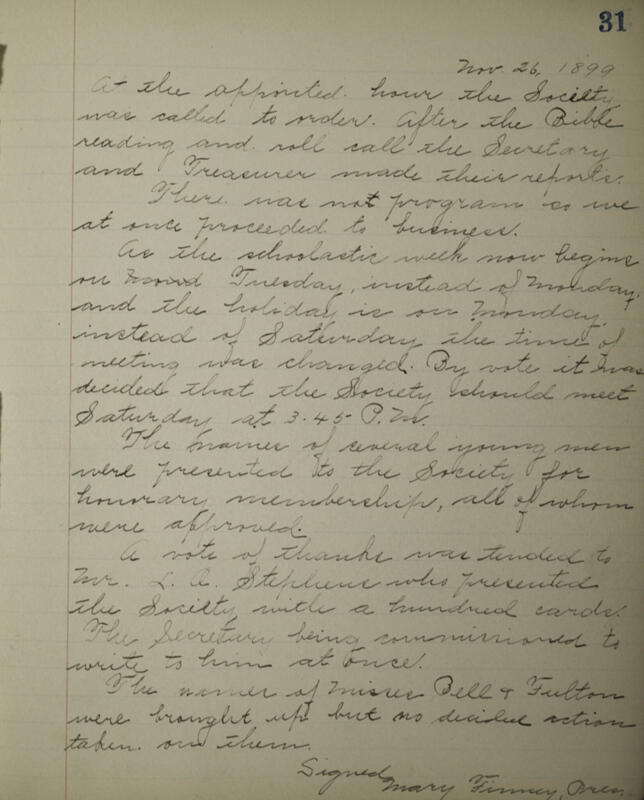 31
Nov. 26, 1899
At the appointed hour the Society
was called to order. After the Bible
reading and roll call the Secretary
and Treasurer made their reports.
There was not program so we
at once proceeded to business.
As the scholastic week now begins
on Tuesday, instead of Monday,
and the holiday is on Monday,
instead of Saturday the time of
meeting was changed. By vote it was
decided that the Society should meet
Saturday at 3.45 P.M.
The names of several young men
were presented to the Society for
honorary membership, all of whom
were approved.
A vote of thanks was tended to
Mr. L. A. Stephens who presented
the Society with a hundred cards.
The Secretary being commissioned to
write to him at once.
The names of Misses Bell & Fulton
were brought up but no decided action
taken on them.
Signed
Mary Finney, Pres.